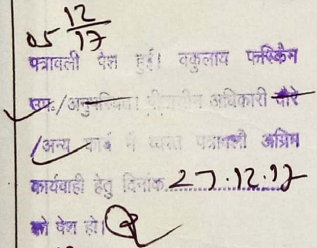 05 12/17
पत्रावली पेश हुई। वकुलाय फरिकेन
उप./अनुपस्थित। पीठासीन अधिकारी दौरे
/अन्य कार्य में व्यस्त पत्रावली अग्रिम
कार्यवाही हेतु दिनांक 27.12.17
को पेश हो।